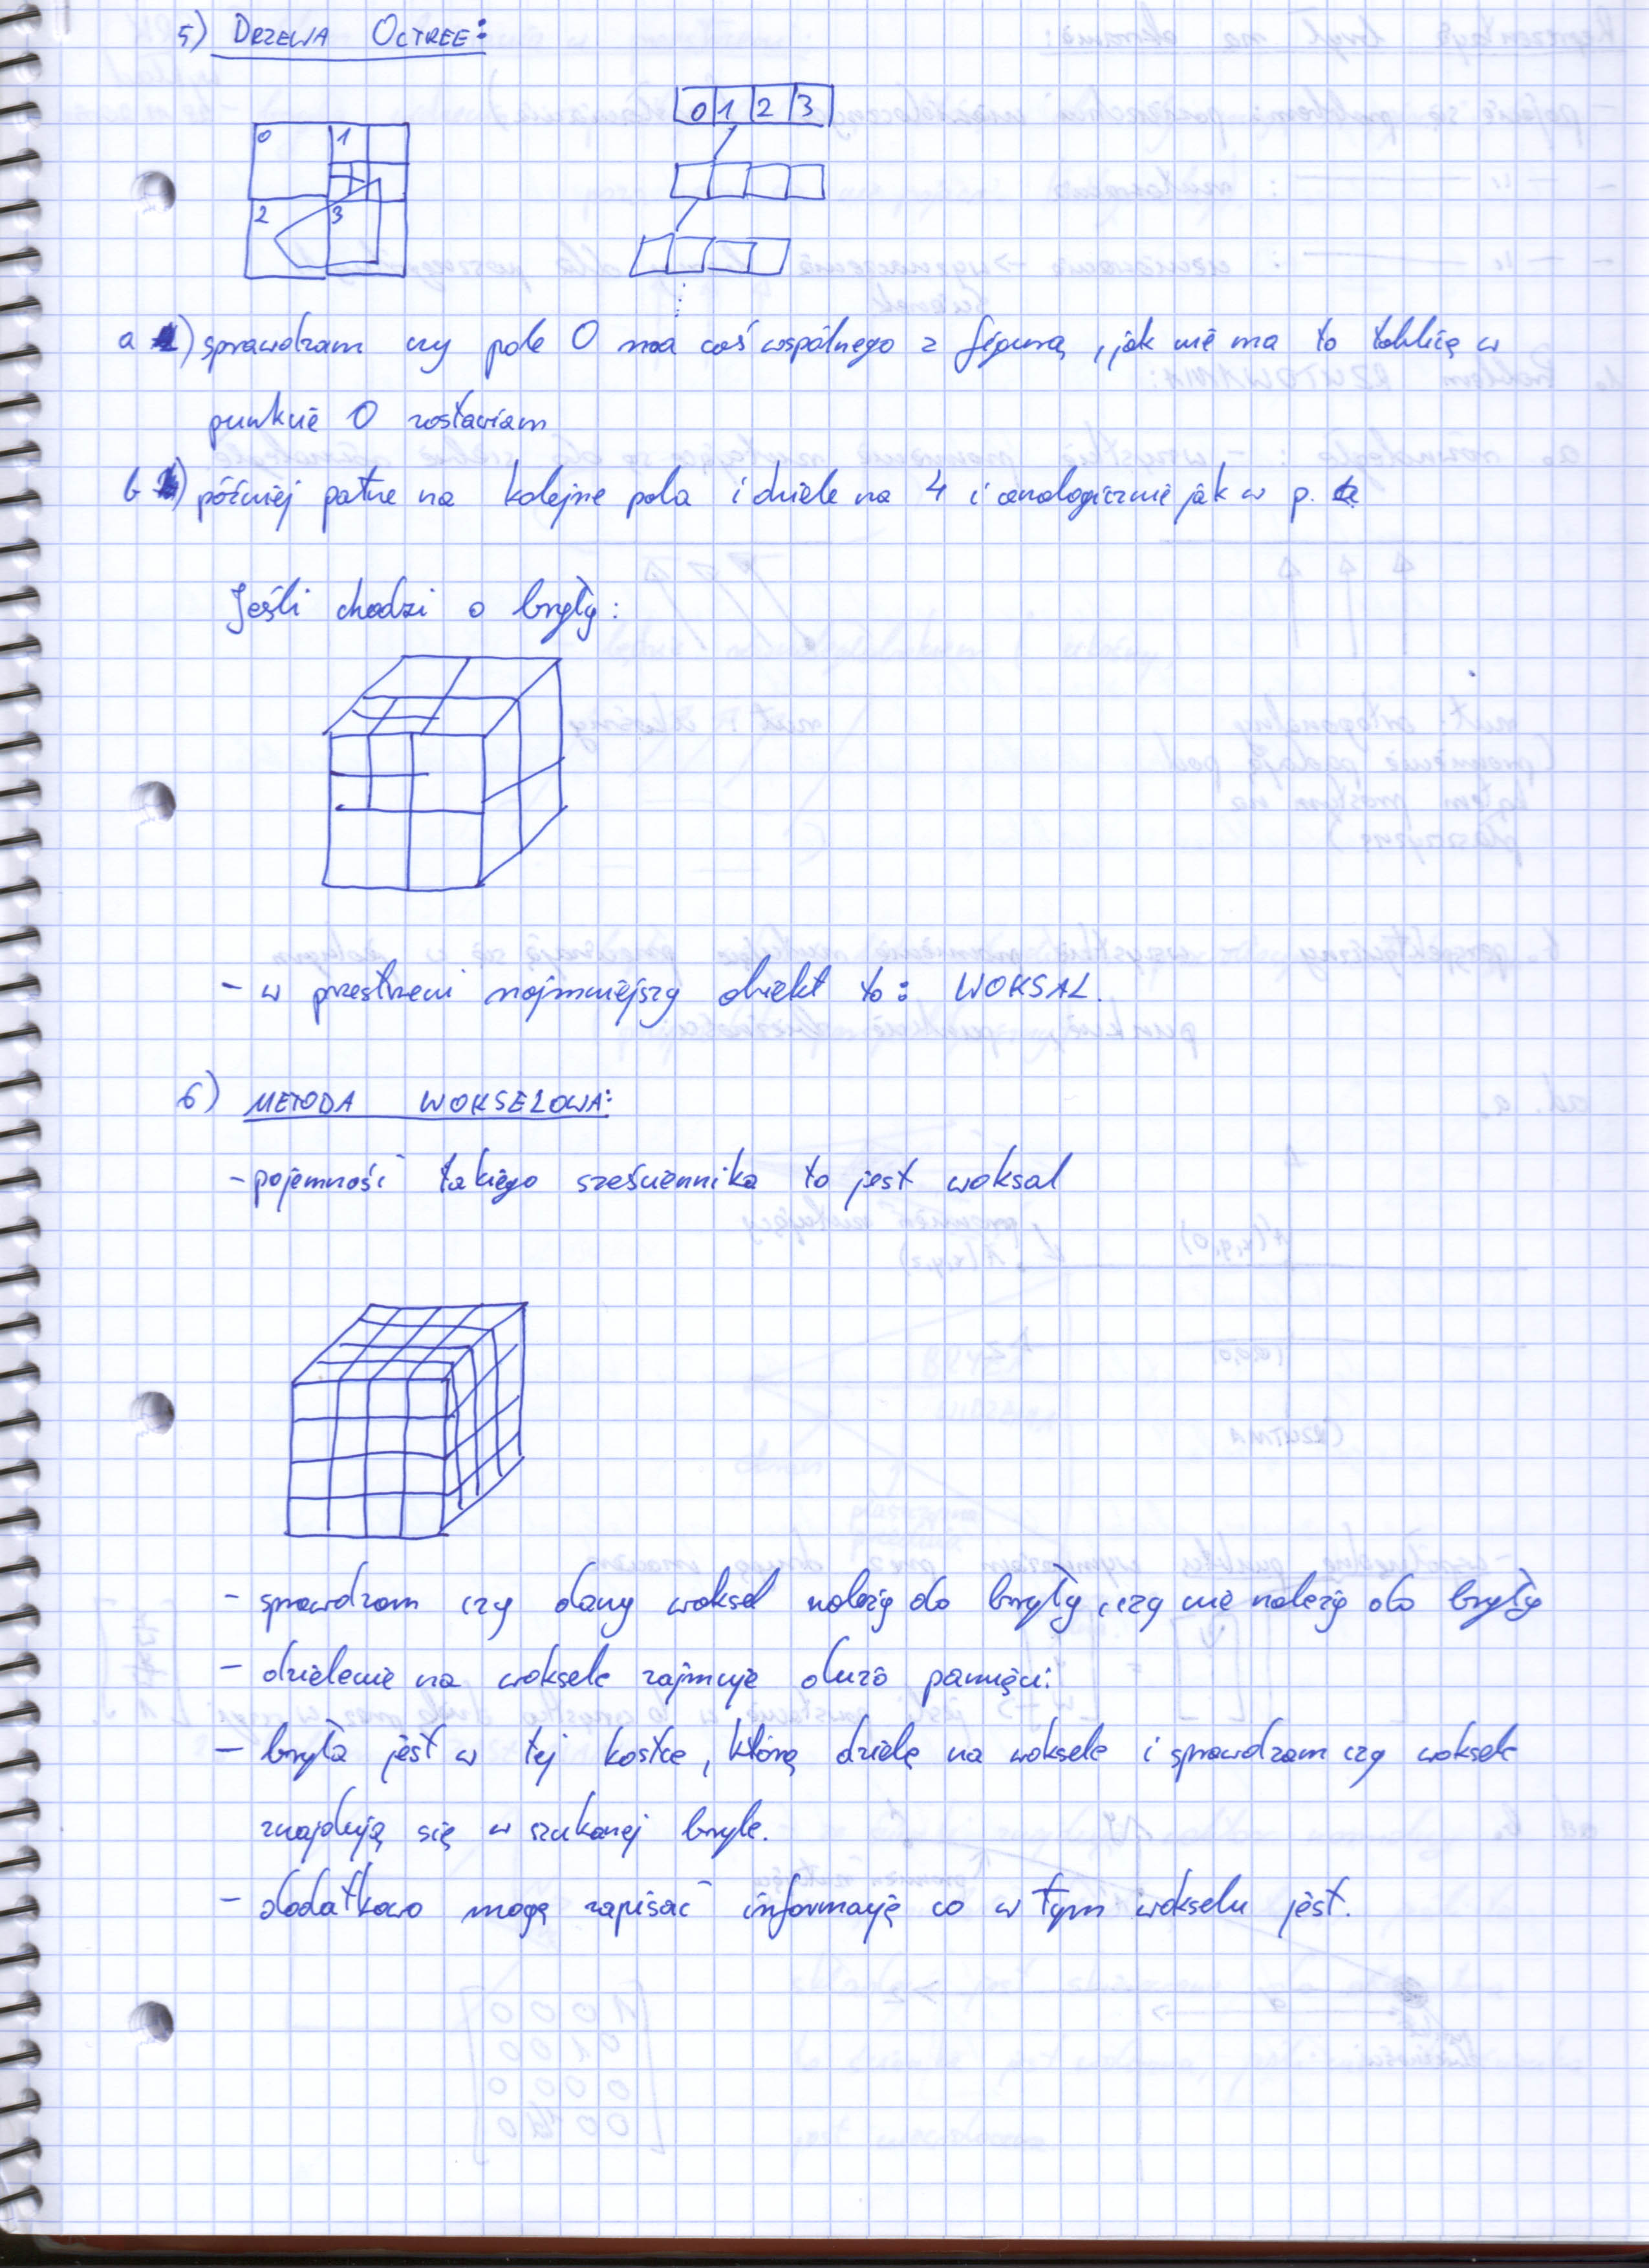 5) DRZEWA OCTREE:
0 1 2 3
0 1
2 3
a) sprawdzam czy pole 0 ma coś wspólnego z figurą, jak nie ma to tablicę w
punkcie 0 zostawiam
b) później patrzę na kolejne pola i dzielę na 4 i analogicznie jak w p. a
Jeśli chodzi o bryły:
- w przestrzeni najmniejszy obiekt to: WOKSAL.
6) METODA WOKSELOWA:
- pojemność takiego sześciennika to jest woksal
- sprawdzam czy dany woksel należy do bryły, czy nie należy do bryły
- dzielenie na woksele zajmuje dużo pamięci
- bryła jest w tej kostce, którą dzielę na woksele i sprawdzam czy woksele
znajdują się w szukanej bryle.
- dodatkowo mogę zapisać informację co w tym wokselu jest.